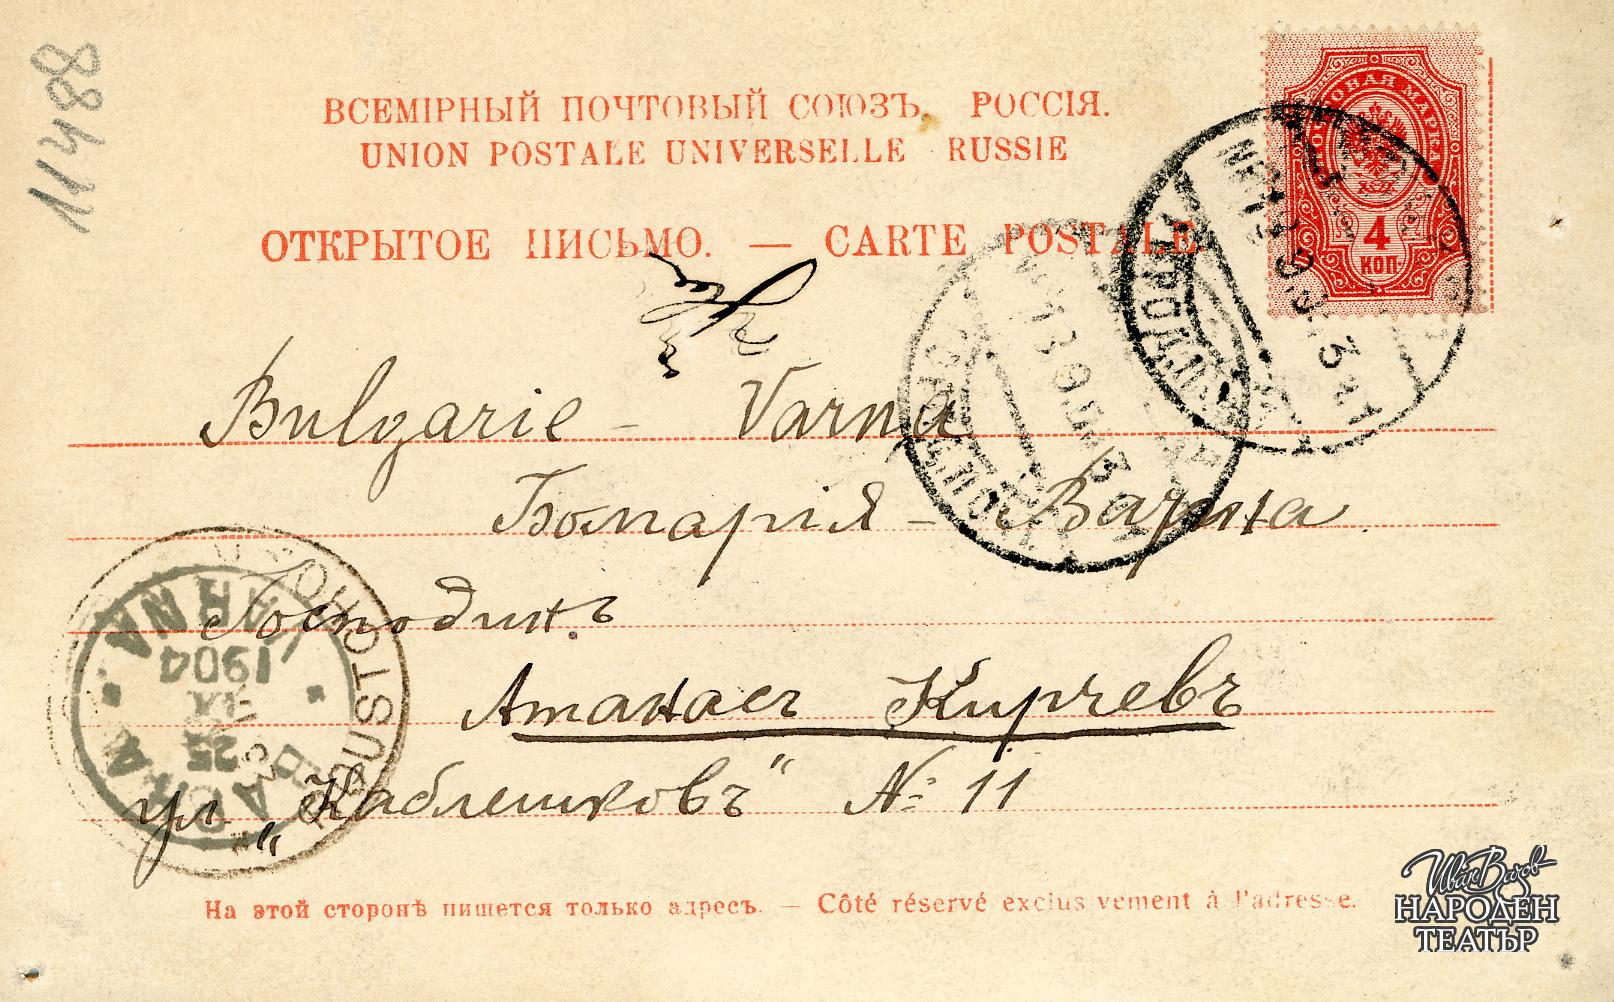 11488
ВСЕМІРНЫЙ ПОЧТОВЫЙ СОЮЗЪ. РОССІЯ.
UNION POSTALE UNIVERSELLE RUSSIE
ОТКРЫТОЕ ПИСЬМО. — CARTE POSTALE
ПОЧТОВАЯ МАРКА
4
КОП
Bulgarie - Varna
Болгарія - Варна.
Господинъ
Атанасъ Кирчевъ
ул. „Каблешковъ" №: 11
VARNA
1904
25
ВАРНА
На этой сторонѣ пишется только адресъ. — Côté réservé exclusivement à l'adresse.
Иван Вазов
НАРОДЕН
ТЕАТЪР